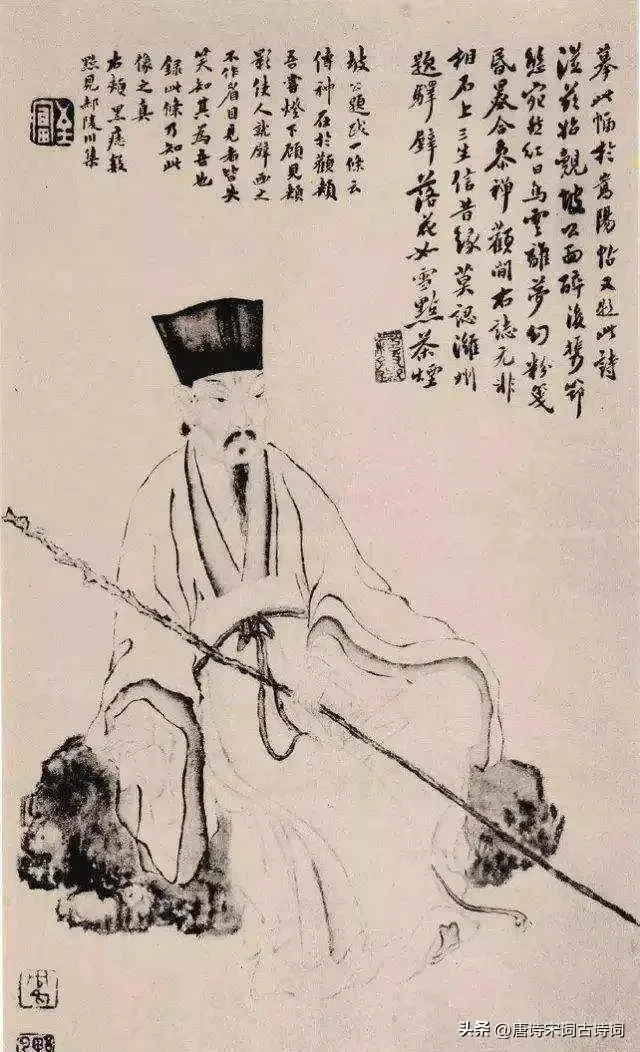 摹此幅於嵩陽帖又題此詩
從茲始覩坡公面醉後携笻
態宛然紅日烏雲離夢幻粉箋
昏墨合參禪顴間右誌元非
相石上三生信昔緣莫認濰州
題驛壁落花如雪點茶煙
坡公題跋一條云
傳神在於顴頰
吾嘗燈下顧見頰
影使人就壁画之
不作眉目見者皆失
笑知其為吾也
錄此條乃知此
像之真
右頰黑痣數
點見郝陵川集
头条 @唐诗宋词古诗词